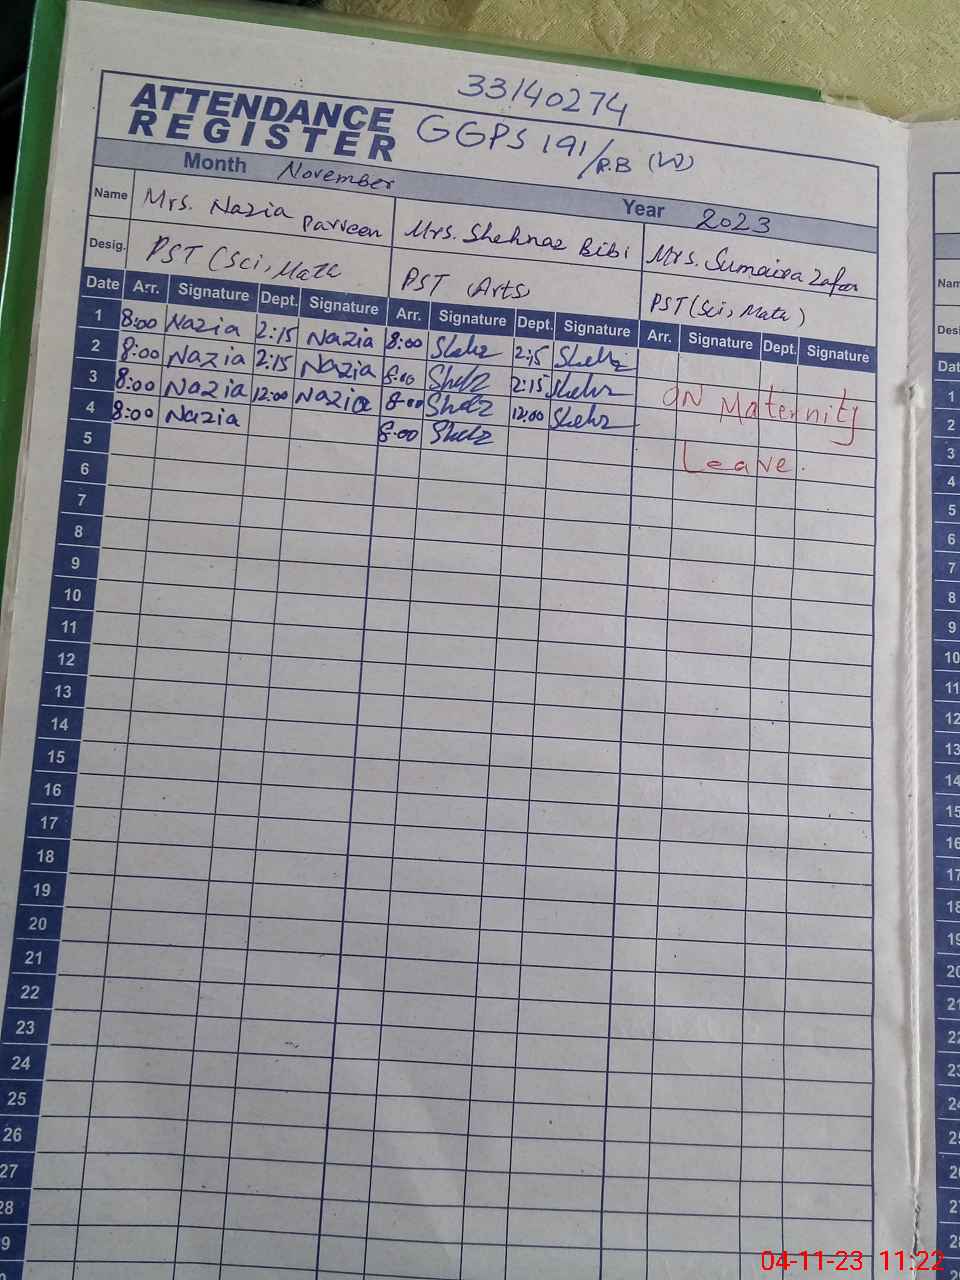 33140274
ATTENDANCE
REGISTER
GGPS 191/R.B (W)
Month November Year 2023
Name Mrs. Nazia Parveen Mrs. Shehnaz Bibi Mrs. Sumaira Zafar
Desig. PST (Sci, Math PST (Arts) PST (Sci, Math)
Date Arr. Signature Dept. Signature Arr. Signature Dept. Signature Arr. Signature Dept. Signature
1 8:00 Nazia 2:15 Nazia 8:00 Shehz 2:15 Shehz
2 8:00 Nazia 2:15 Nazia 8:00 Shehz 2:15 Shehz
3 8:00 Nazia 12:00 Nazia 8:00 Shehz 12:00 Shehz
4 8:00 Nazia 8:00 Shehz
ON Maternity
Leave.
5
6
7
8
9
10
11
12
13
14
15
16
17
18
19
20
21
22
23
24
25
26
27
28
9
Nam
Desi
Dat
1
2
3
4
5
6
7
8
9
10
11
12
13
14
15
16
17
18
19
20
21
22
23
24
25
26
27
28
04-11-23 11:22